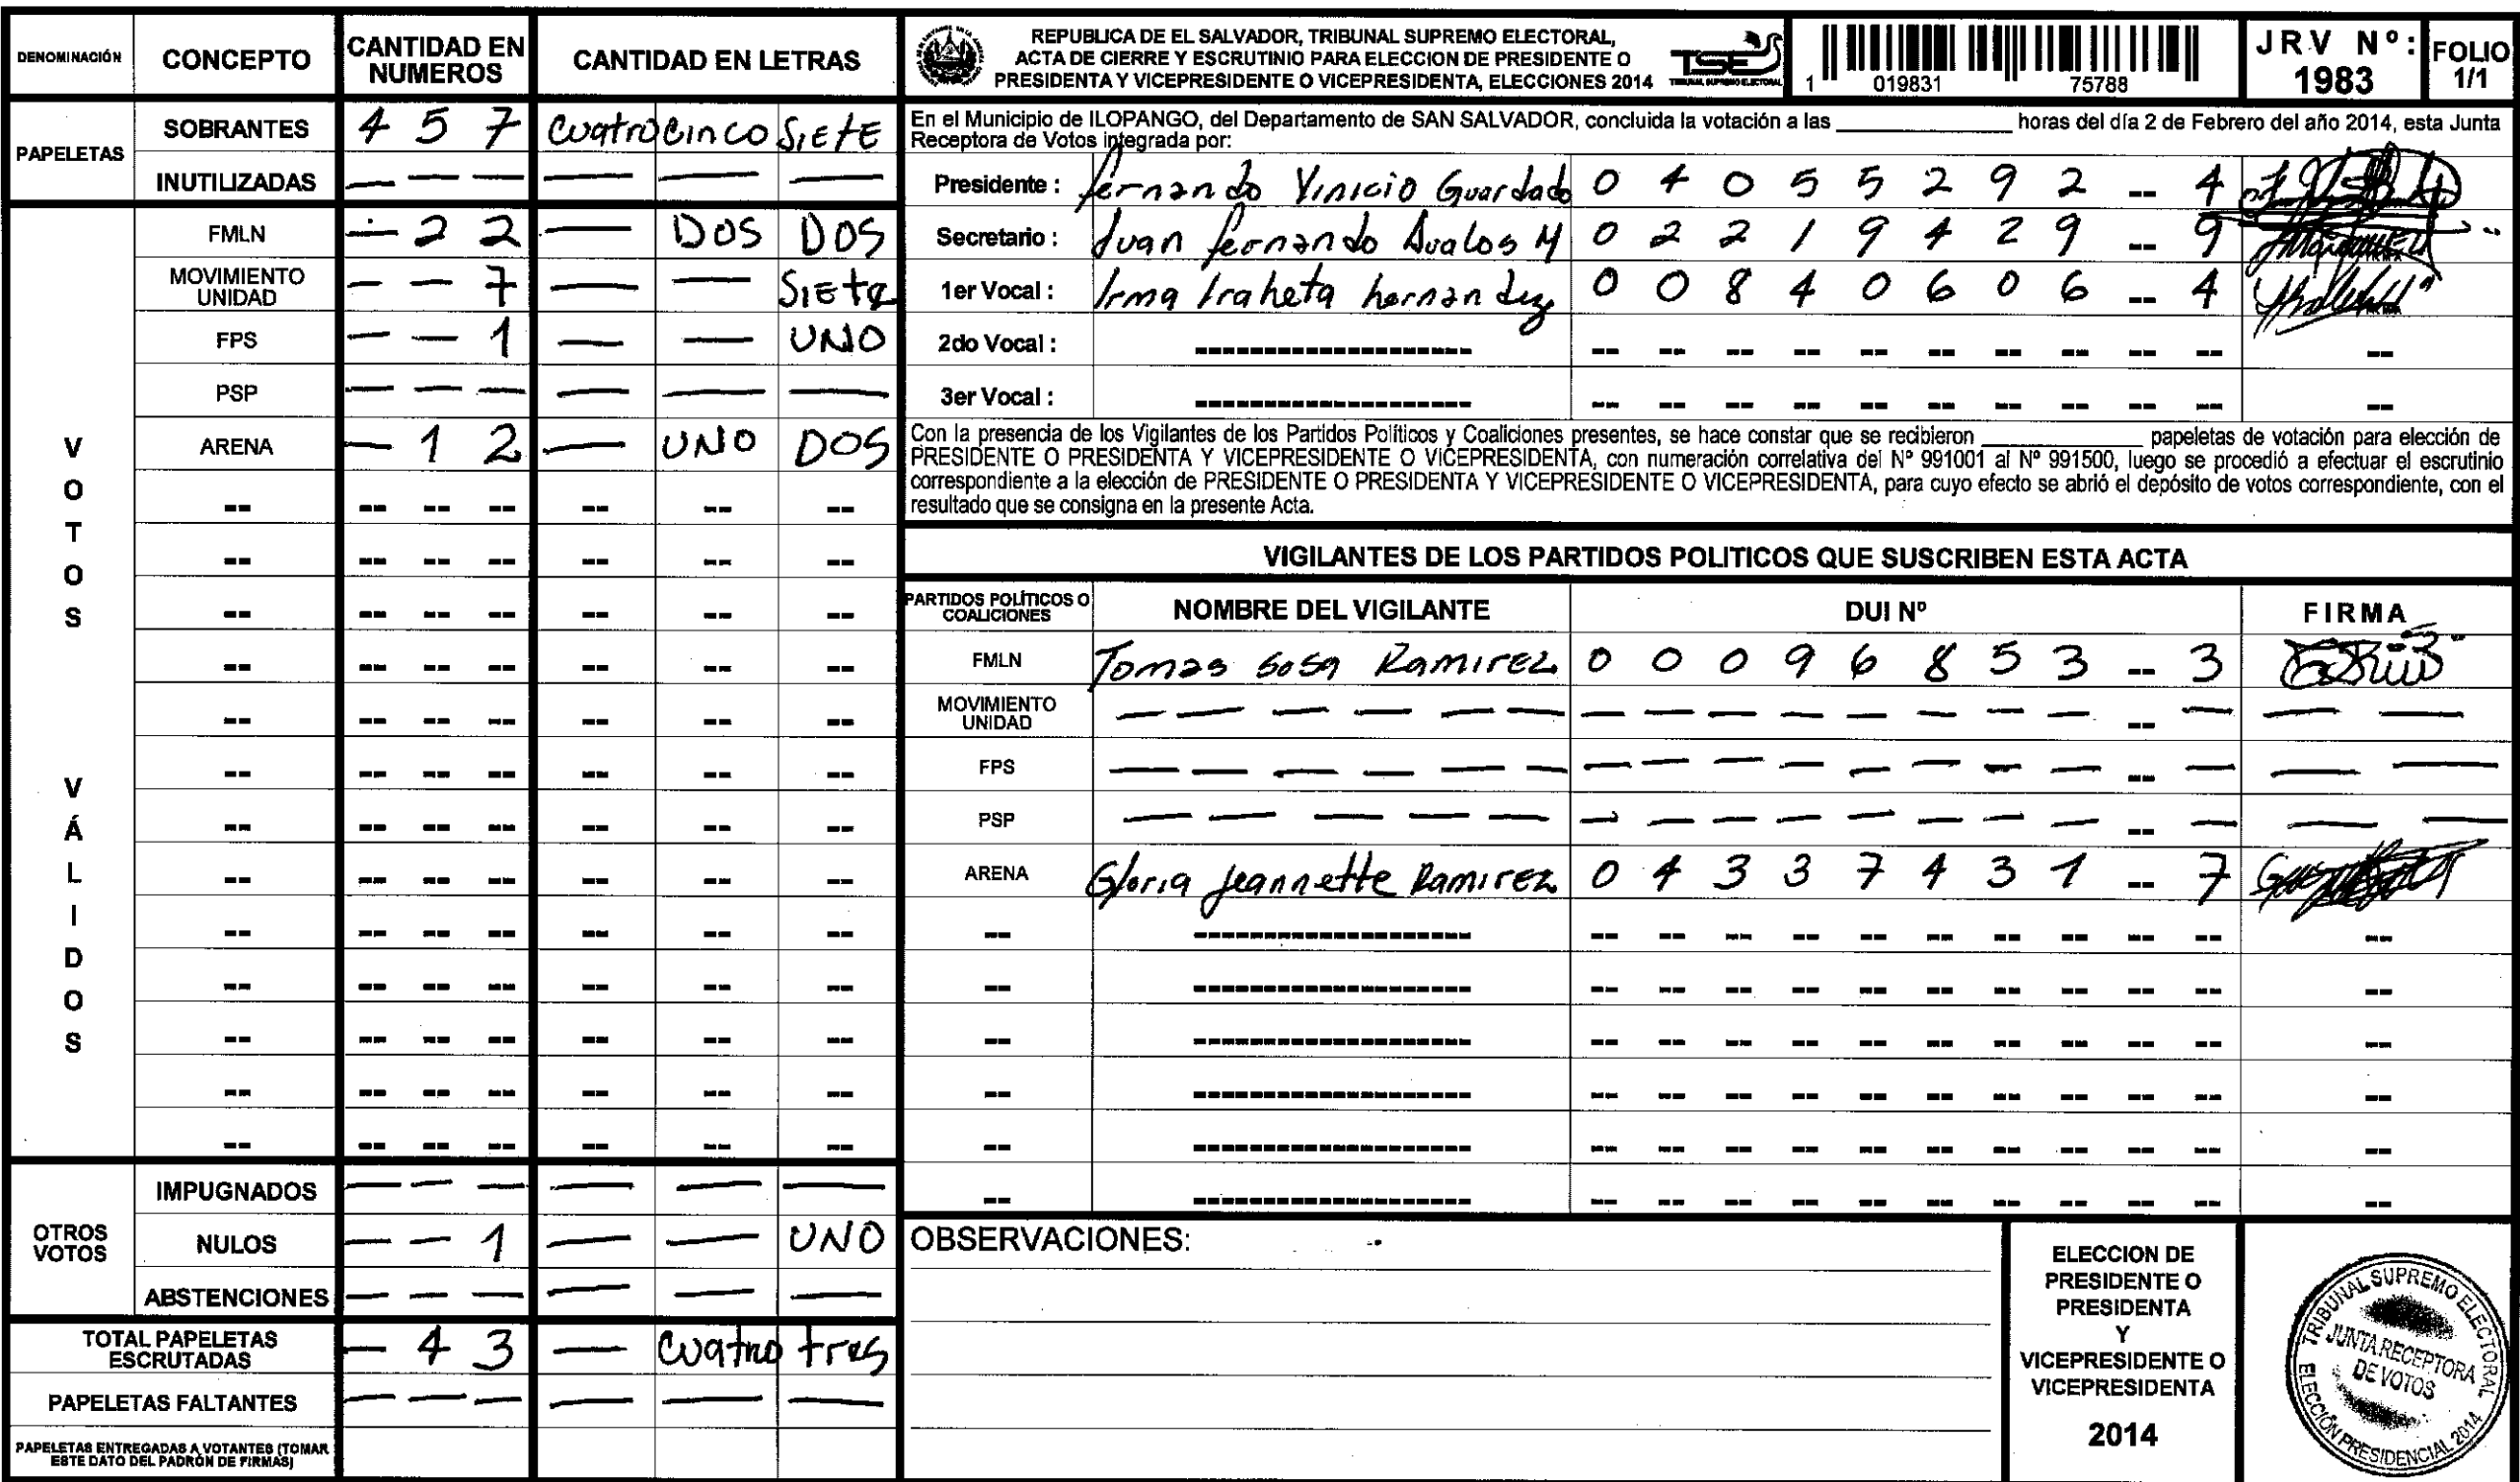 DENOMINACIÓN CONCEPTO CANTIDAD EN NUMEROS CANTIDAD EN LETRAS
PAPELETAS
SOBRANTES 4 5 7 cuatro cinco SIETE
INUTILIZADAS — — — — — —
VOTOS VÁLIDOS
FMLN — 2 2 — DOS DOS
MOVIMIENTO UNIDAD — — 7 — — SIETE
FPS — — 1 — — UNO
PSP — — — — — —
ARENA — 1 2 — UNO DOS
OTROS VOTOS
IMPUGNADOS — — — — — —
NULOS — — 1 — — UNO
ABSTENCIONES — — — — — —
TOTAL PAPELETAS ESCRUTADAS — 4 3 — cuatro tres
PAPELETAS FALTANTES — — — — — —
PAPELETAS ENTREGADAS A VOTANTES (TOMAR
ESTE DATO DEL PADRÓN DE FIRMAS)
REPUBLICA DE EL SALVADOR, TRIBUNAL SUPREMO ELECTORAL,
ACTA DE CIERRE Y ESCRUTINIO PARA ELECCION DE PRESIDENTE O
PRESIDENTA Y VICEPRESIDENTE O VICEPRESIDENTA, ELECCIONES 2014
TSE
TRIBUNAL SUPREMO ELECTORAL
1 019831 75788
JRV Nº: 1983
FOLIO 1/1
En el Municipio de ILOPANGO, del Departamento de SAN SALVADOR, concluida la votación a las ____________ horas del día 2 de Febrero del año 2014, esta Junta
Receptora de Votos integrada por:
Presidente : fernando Vinicio Guardado 0 4 0 5 5 2 9 2 -- 4
Secretario : Juan fernando Avalos M 0 2 2 1 9 4 2 9 -- 9
1er Vocal : Irma Iraheta hernandez 0 0 8 4 0 6 0 6 -- 4
2do Vocal :
3er Vocal :
Con la presencia de los Vigilantes de los Partidos Políticos y Coaliciones presentes, se hace constar que se recibieron ____________ papeletas de votación para elección de
PRESIDENTE O PRESIDENTA Y VICEPRESIDENTE O VICEPRESIDENTA, con numeración correlativa del Nº 991001 al Nº 991500, luego se procedió a efectuar el escrutinio
correspondiente a la elección de PRESIDENTE O PRESIDENTA Y VICEPRESIDENTE O VICEPRESIDENTA, para cuyo efecto se abrió el depósito de votos correspondiente, con el
resultado que se consigna en la presente Acta.
VIGILANTES DE LOS PARTIDOS POLITICOS QUE SUSCRIBEN ESTA ACTA
PARTIDOS POLÍTICOS O COALICIONES NOMBRE DEL VIGILANTE DUI Nº FIRMA
FMLN Tomas Sosa Ramirez 0 0 0 9 6 8 5 3 -- 3
MOVIMIENTO UNIDAD
FPS
PSP
ARENA Gloria Jeannette Ramirez 0 4 3 3 7 4 3 1 -- 7
OBSERVACIONES:
ELECCION DE
PRESIDENTE O
PRESIDENTA
Y
VICEPRESIDENTE O
VICEPRESIDENTA
2014
TRIBUNAL SUPREMO ELECTORAL
JUNTA RECEPTORA
DE VOTOS
ELECCIÓN PRESIDENCIAL 2014